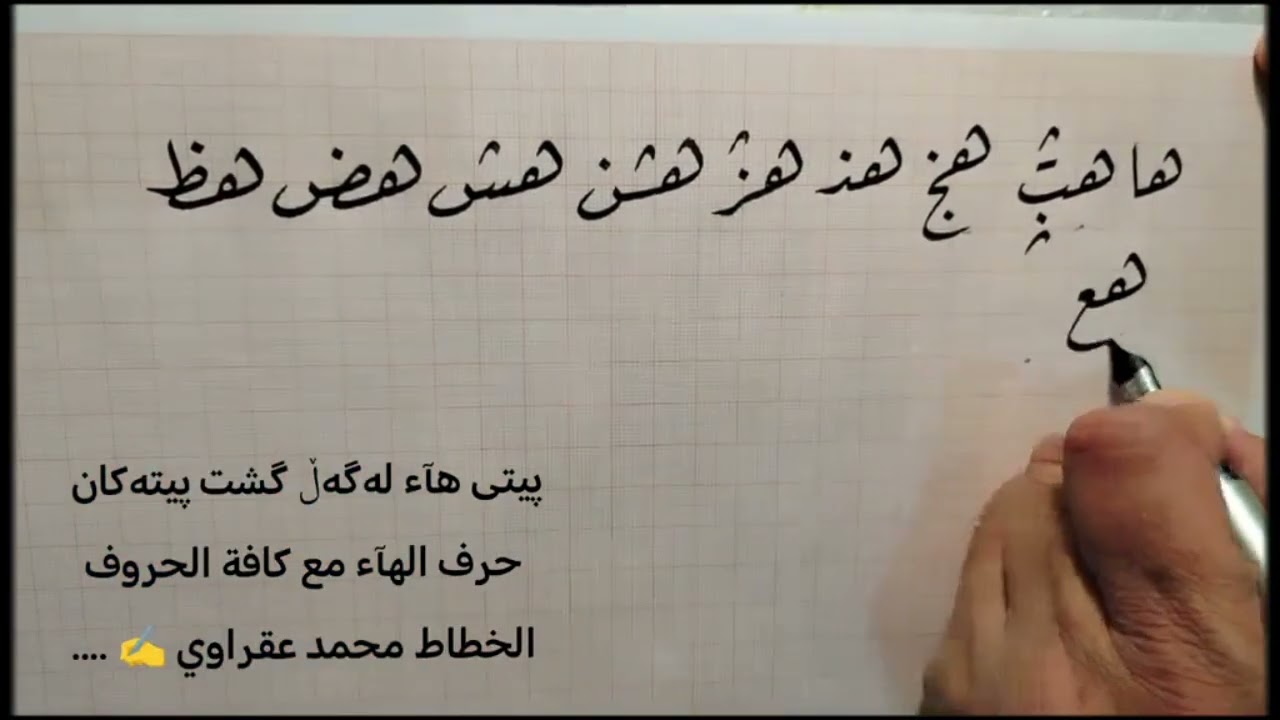 ها هذ هژ هش هش هض هظ
هع
پیتی هآء لەگەڵ گشت پیتەکان
حرف الهآء مع كافة الحروف
الخطاط محمد عقراوي ✍️ ....